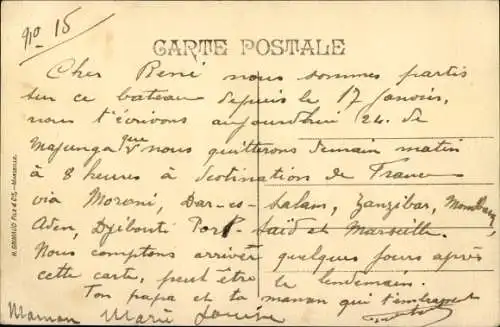 910 - 15
CARTE POSTALE
Cher René nous sommes partis
sur ce bateau depuis le 17 Janvier,
nous t'écrivons aujourdhui 24. de
Majunga que nous quitterons demain matin
à 8 heures à destination de France
via Moroni, Dar-es-Salam, Zanzibar, Mombaza,
Aden, Djibouti Port-Saïd et Marseille.
Nous comptons arriver quelques jours après
cette carte, peut être le lendemain.
Ton papa et ta maman qui t'embrassent
Maman Marie Louise
H. GRIMAUD FILS & CIE, - MARSEILLE.